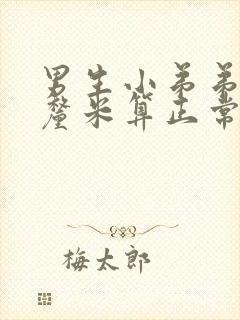 男生小弟弟
釐米算正常
梅太郎